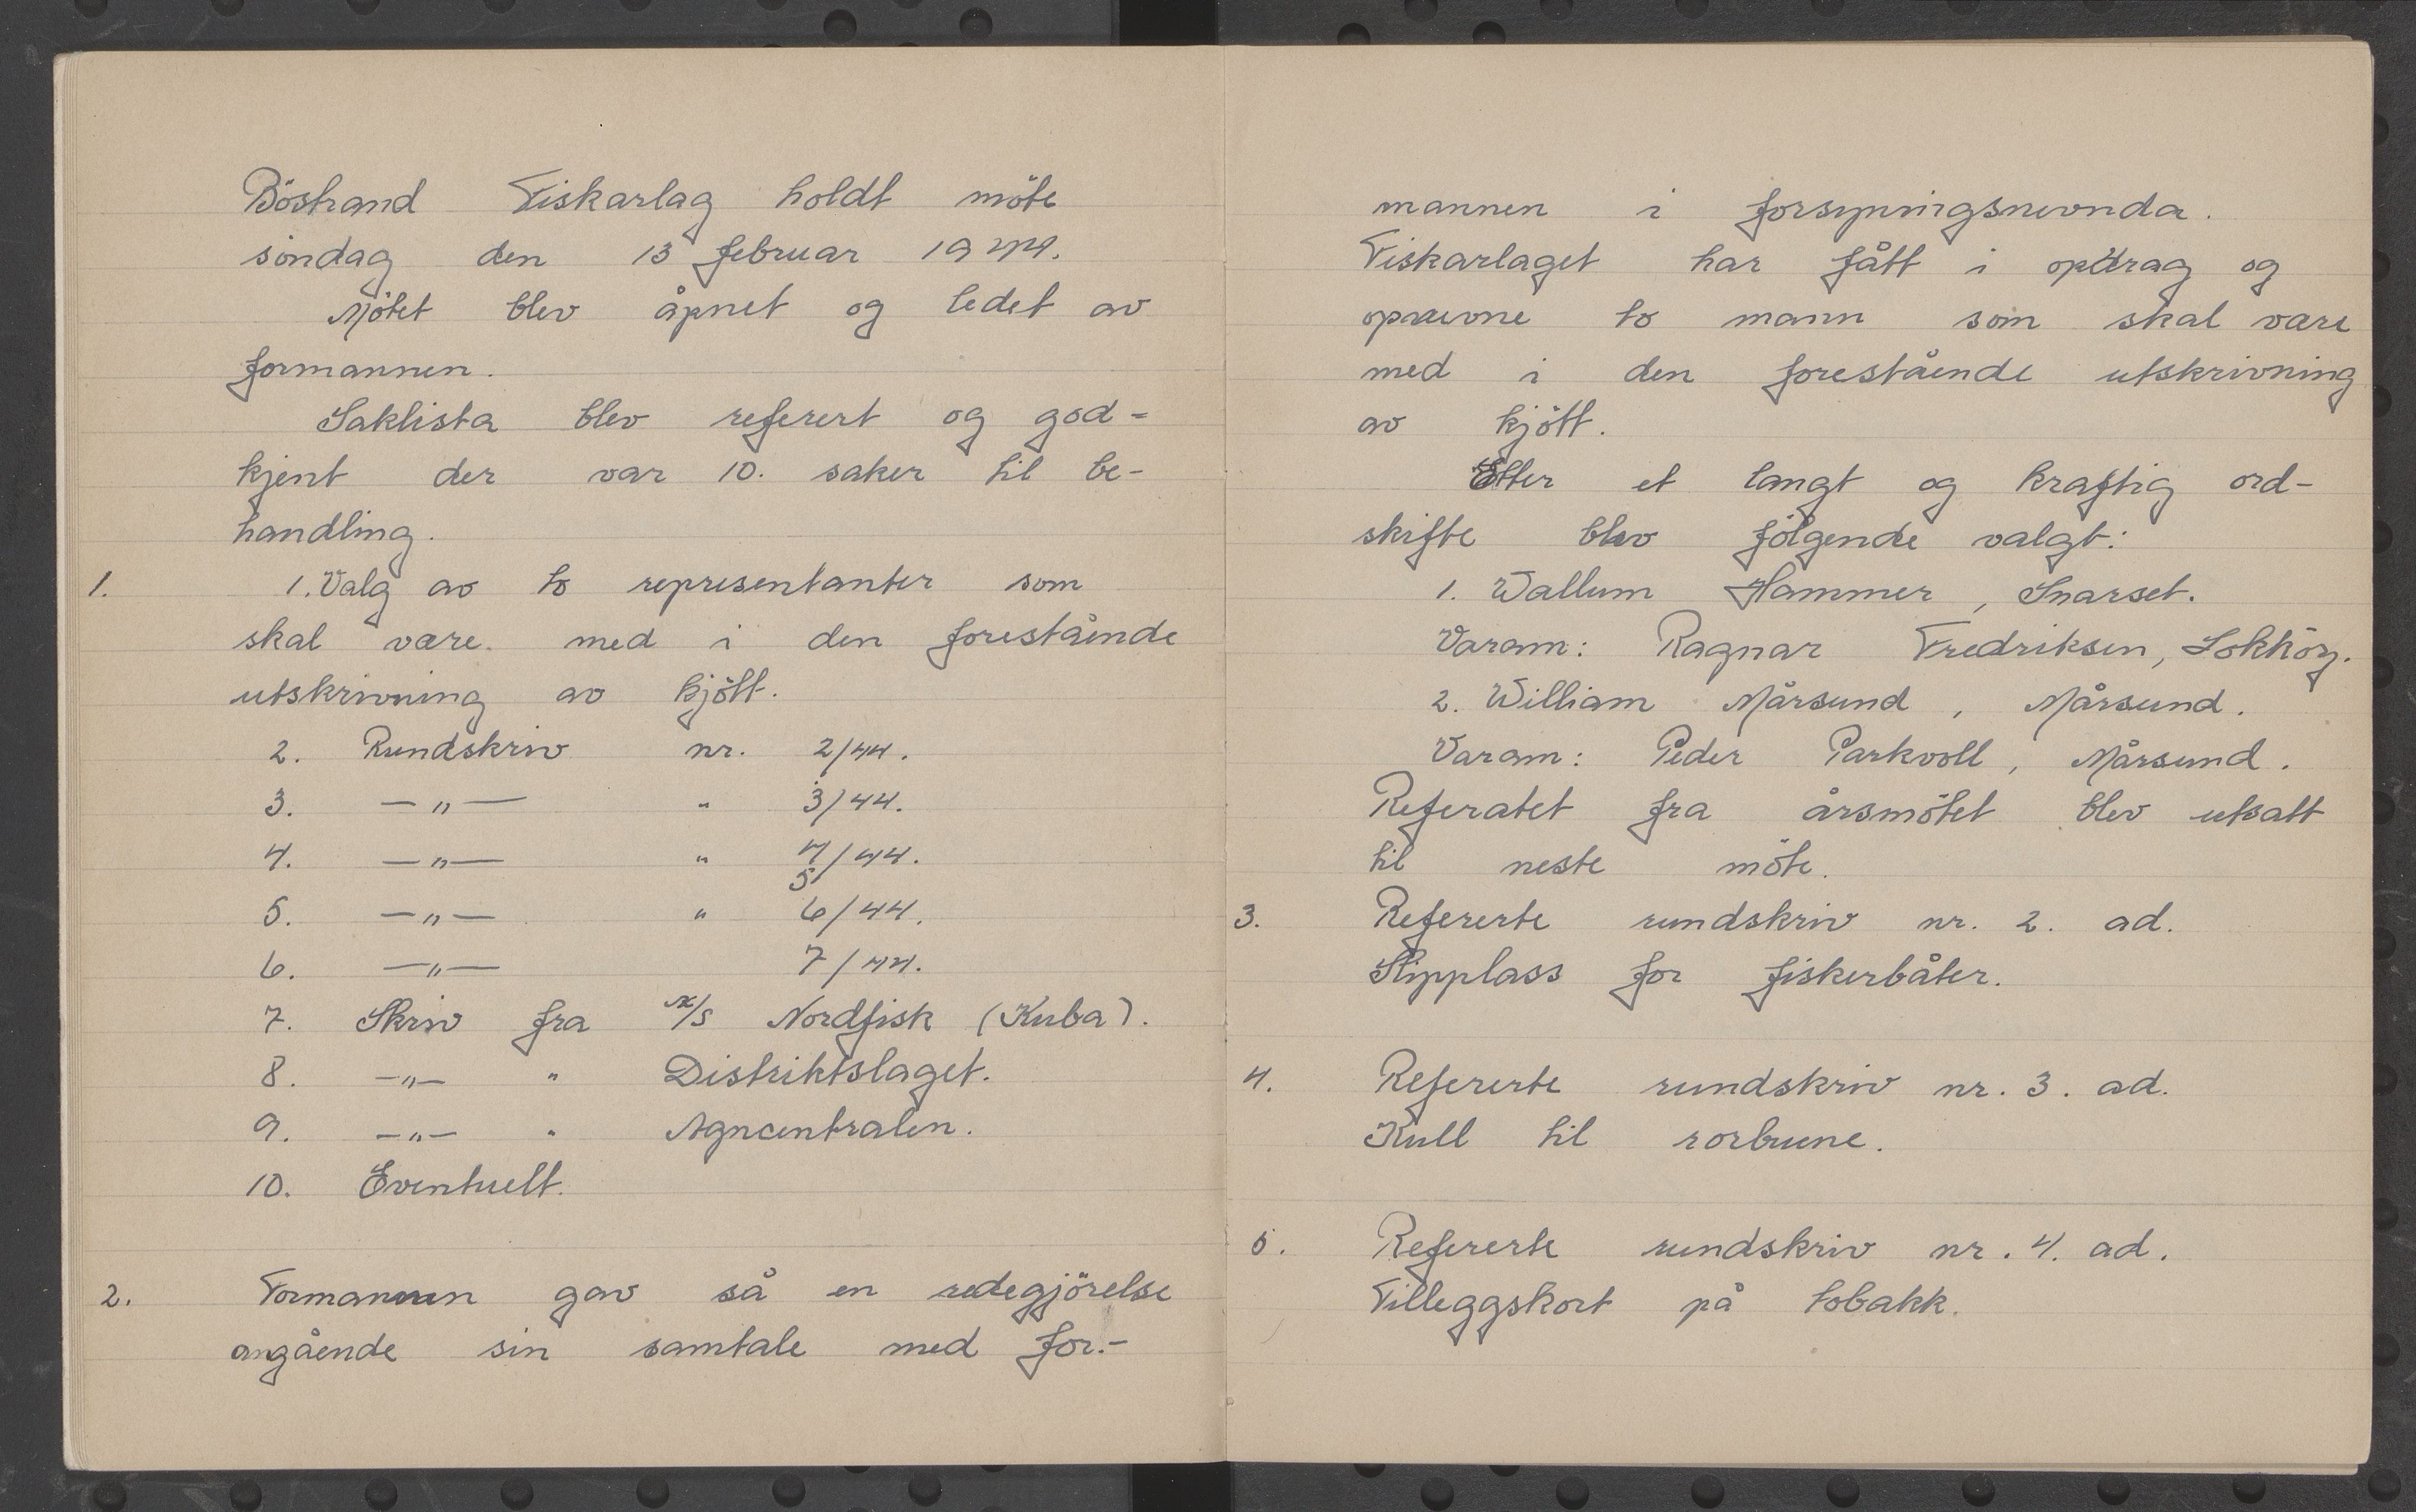 Böstrand Fiskarlag holdt möte
söndag den 13 februar 1944.
Mötet blev åpnet og ledet av
formannen.
Saklista blev referert og god-
kjent der var 10. saker til be-
handling.
1. 1. Valg av to representanter som
skal være med i den forestående
utskrivning av kjött.
2. Rundskriv nr. 2/44.
3. —"— " 3/44.
4. —"— " 4/44.
5
5. —"— " 6/44.
6. —"— 7/44.
7. Skriv fra A/S Nordfisk (Kuba).
8. —"— " Distriktslaget.
9. —"— " Agncentralen.
10. Eventuelt.
2. Formannen gav så en redegjörelse
angående sin samtale med for-
mannen i forsyningsnevnda.
Fiskarlaget har fått i opdrag og
opnevne to mann som skal være
med i den forestående utskrivning
av kjött.
Etter et langt og kraftig ord-
skifte blev fölgende valgt:
1. Wallum Hammer, Snarset.
Varam: Ragnar Fredriksen, Lokköy.
2. William Mårsund, Mårsund.
Varam: Peder Parkvoll, Mårsund.
Referatet fra årsmötet blev utsatt
til neste möte.
3. Refererte rundskriv nr. 2. ad.
Slipplass for fiskerbåter.
4. Refererte rundskriv nr. 3. ad.
Kull til rorbuene.
5. Refererte rundskriv nr. 4. ad.
Tilleggskort på tobakk.